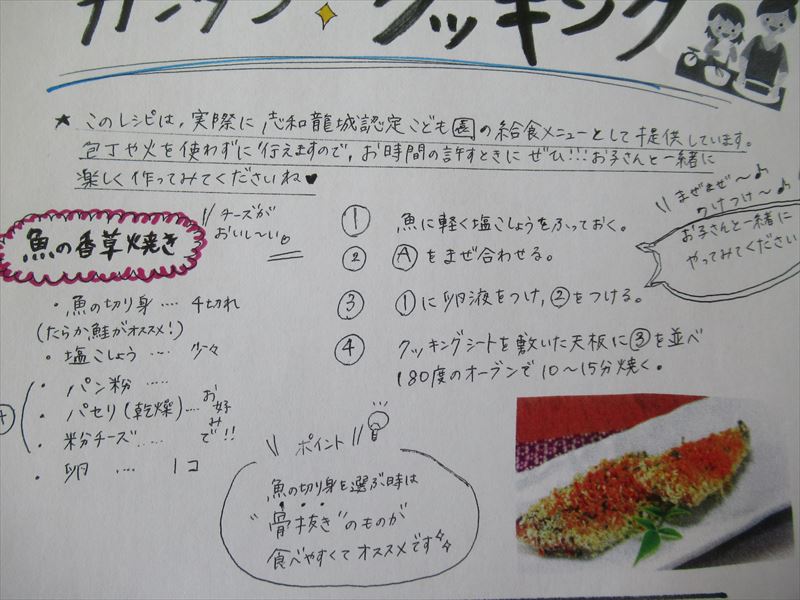 カンタン クッキング
★ このレシピは、実際に志和龍城認定こども園の給食メニューとして提供しています。
包丁や火を使わずに行えますので、お時間の許すときにぜひ!!!お子さんと一緒に
楽しく作ってみてくださいね♥
魚の香草焼き
チーズが
おいし〜い。
・魚の切り身 …. 4切れ
(たらか鮭がオススメ!)
・塩こしょう …. 少々
・パン粉 …..
・パセリ(乾燥)….
・粉チーズ…..
お好みで!!
・卵 …. 1コ
① 魚に軽く塩こしょうをふっておく。
② Ⓐをまぜ合わせる。
③ ①に卵液をつけ、②をつける。
④ クッキングシートを敷いた天板に③を並べ
180度のオーブンで10〜15分焼く。
まぜまぜ〜♪
つけつけ〜♪
お子さんと一緒に
やってみてください
ポイント
魚の切り身を選ぶ時は
"骨抜き"のものが
食べやすくてオススメです